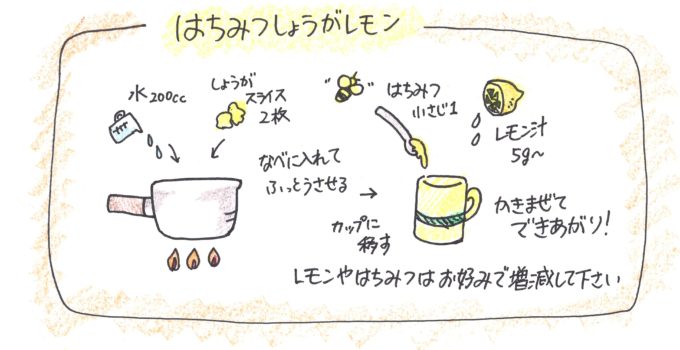 はちみつしょうがレモン
水 200cc
しょうが
スライス
2枚
なべに入れて
ふっとうさせる
はちみつ
小さじ1
レモン汁
5g〜
カップに
移す
かきまぜて
できあがり!
レモンやはちみつはお好みで増減して下さい